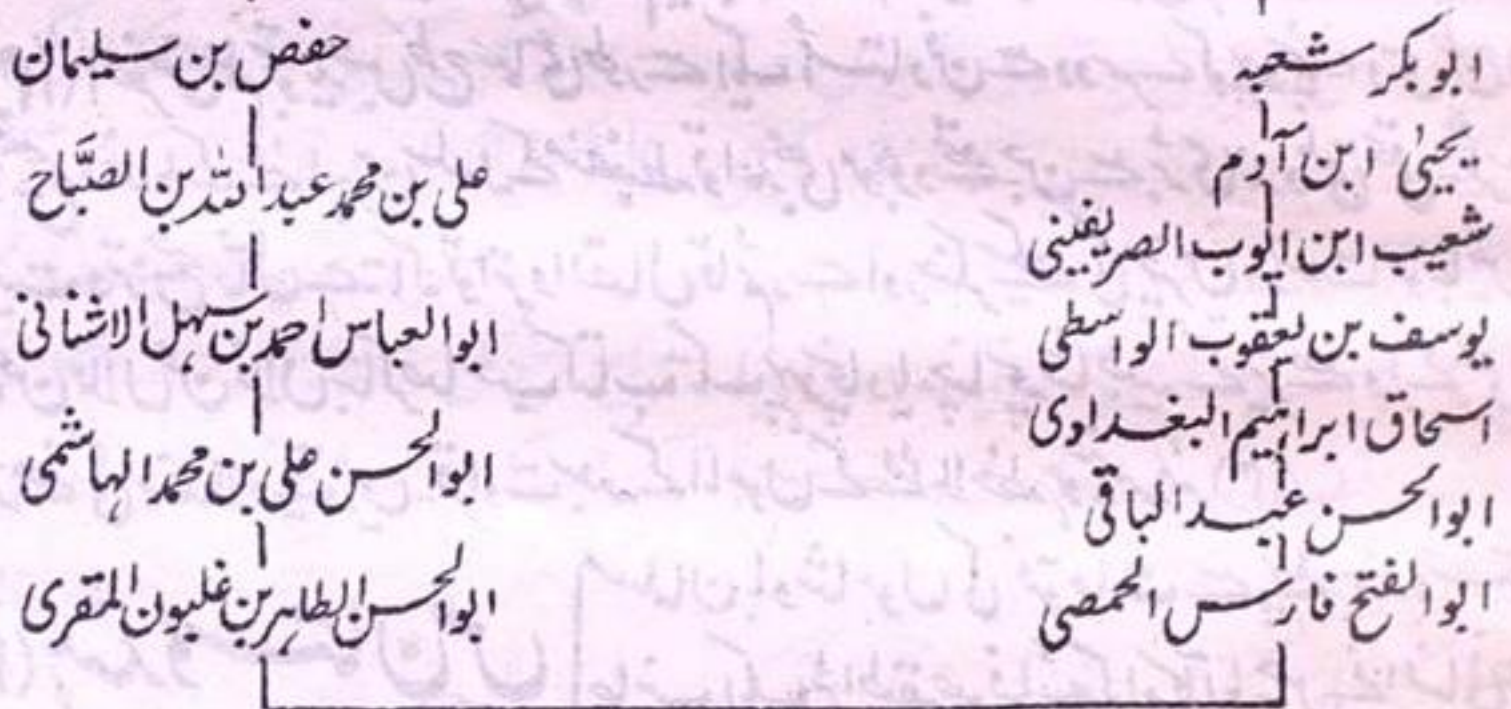 ابوبکر شعبہ
یحییٰ ابن آدم
شعیب ابن ایوب الصریفینی
یوسف بن یعقوب الواسطی
اسحاق ابراہیم البغدادی
ابوالحسن عبدالباقی
ابوالفتح فارس الحمصی
حفص بن سلیمان
علی بن محمد عبداللہ بن الصبَّاح
ابوالعباس احمد بن سہل الاشنانی
ابوالحسن علی بن محمد الہاشمی
ابوالحسن الطاہر بن غلبون المقری